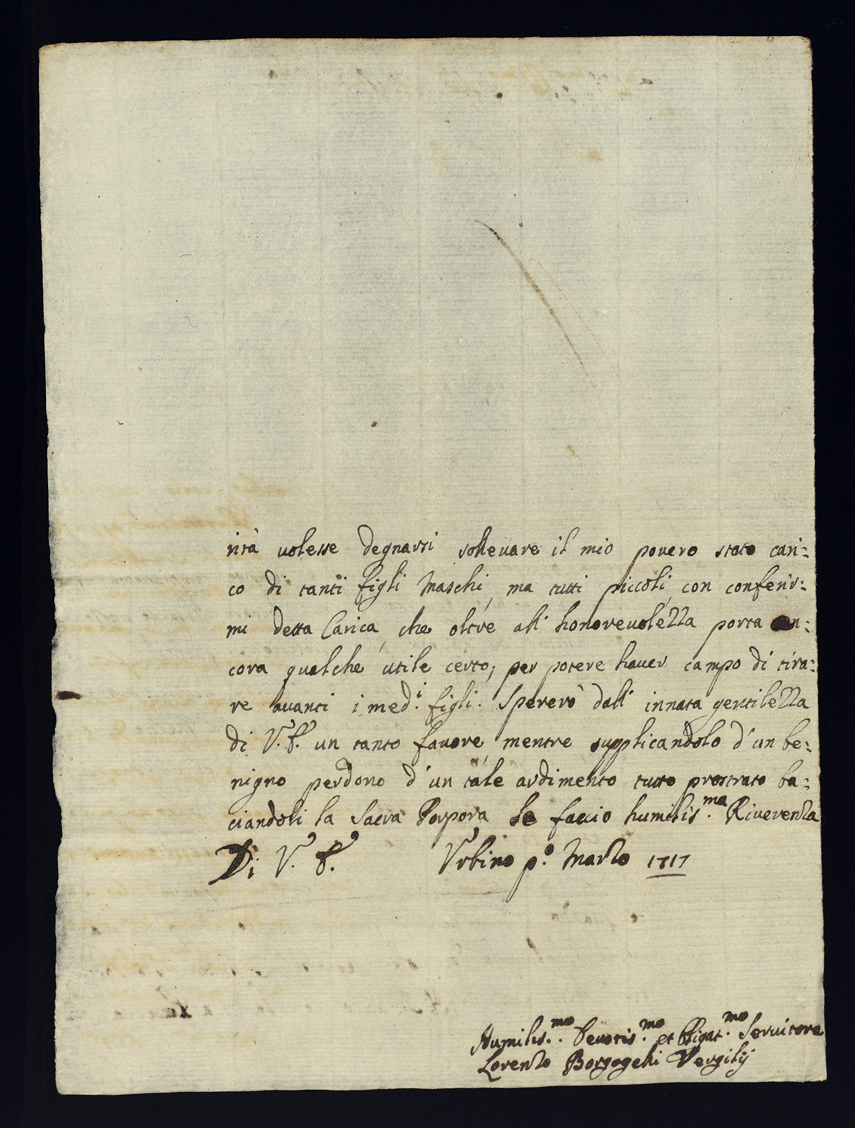 rità volesse degnarsi sollevare il mio povero stato cari=
co di tanti figli Maschi, ma tutti piccoli, con conferir=
mi detta Carica, che oltre all' honorevolezza porta an=
cora qualche utile certo; per potere haver campo di tira=
re avanti i med.i figli. Spererò dall' innata gentilezza
di V. E. un tanto favore mentre supplicandolo d'un be=
nigno perdono d'un tale ardimento tutto prostrato ba=
ciandoli la Sacra Porpora le faccio humilis.ma Riverenza
Di V. E. Urbino p.o Marzo 1717
Humilis.mo Devotis.mo et Obligat.mo Servitore
Lorenzo Vergilij